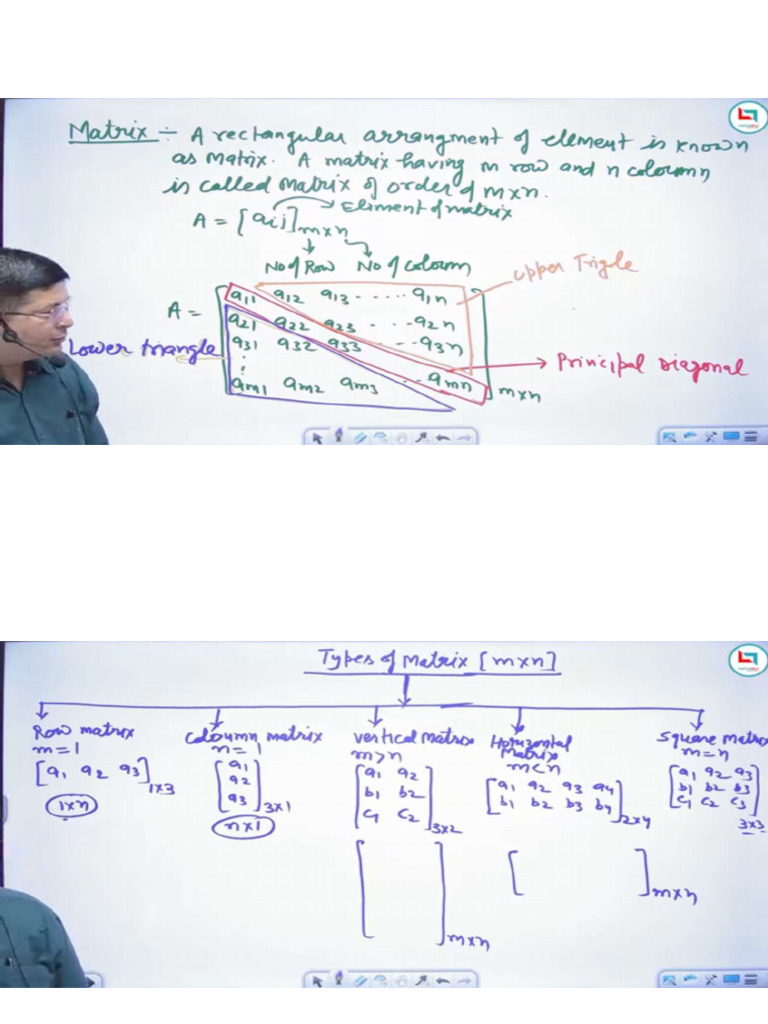 Matrix ÷ A rectangular arrangment of element is known
as matrix. A matrix having m row and n coloumn
is called matrix of order of m×n.
A = [aij]m×n → Eliment of matrix
No of Row No of Coloumn
Upper Trigle
A = [a11 a12 a13 ..... a1n
a21 a22 a23 ...a2n
a31 a32 a33 ...a3n
Lower triangle
Principal Diagonal
am1 am2 am3 ...amn]m×n
Types of Matrix [m×n]
Row matrix
m=1
[a1 a2 a3]1×3
1×n
Coloumn matrix
n=1
[a1
a2
a3]3×1
n×1
Vertical matrix
m>n
[a1 a2
b1 b2
c1 c2]3×2
[ ]m×n
Horizontal
Matrix
m<n
[a1 a2 a3 a4
b1 b2 b3 b4]2×4
[ ]m×n
Square Matrix
m=n
[a1 a2 a3
b1 b2 b3
c1 c2 c3]
3×3